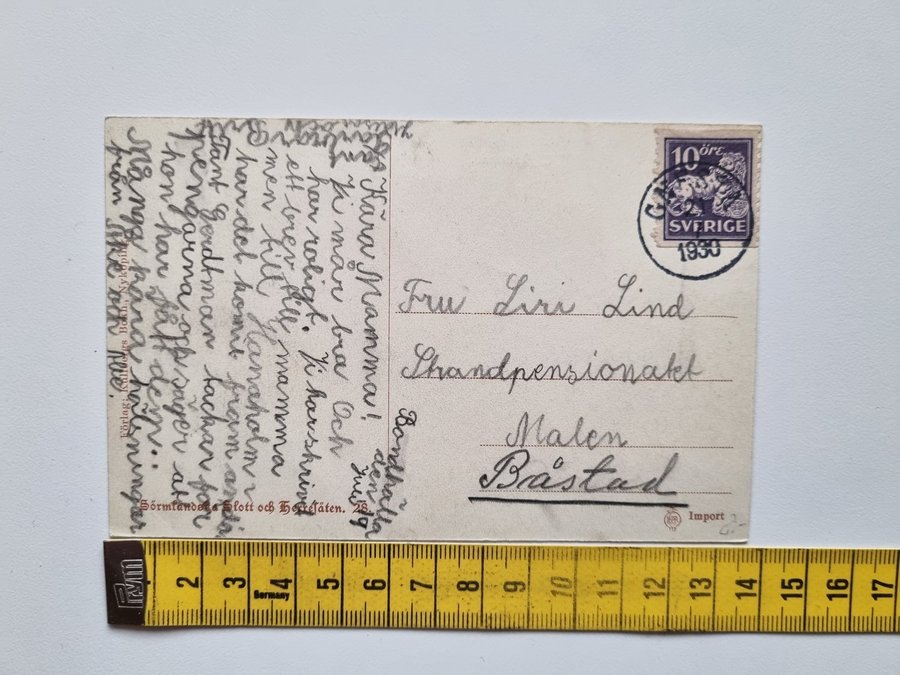 Kära Mamma!
Vi må̊r bra Och
har roligt. Vi har skrivit
ett brev till mamma
men till Hamaholm
har det komit fram
Tant Gerdtman tackar for
pengarna och säger at
hon har fått dem.
Många kära hälsningar
från
Bondhulla
den 19
Juli
10 ÖRE
SVERIGE
21
1930
Fru Siri Lind
Strandpensionatet
Malen
Båstad
Förlag: Bokh., Nyköping
Sörmländska Slott och Herresäten. 28.
Import
2:-
PYM
Germany
2 3 4 5 6 7 8 9 10 11 12 13 14 15 16 17